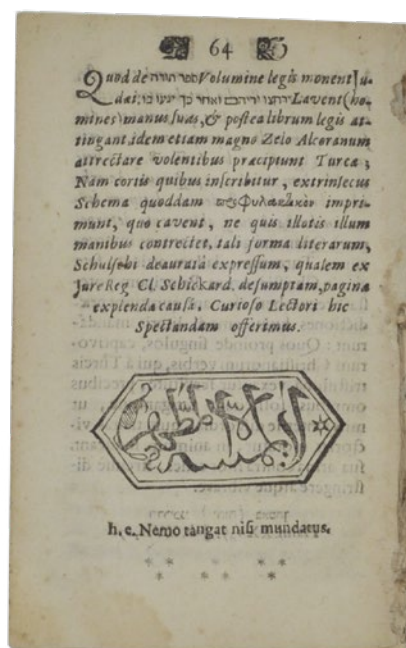 64
Quod de ספר תורה Volumine legis monent Ju-
dæi: ירחצו ידיהם ואחר כך יגעו בו Lavent (ho-
mines) manus suas, & postea librum legis at-
tingant, idem etiam magno Zelo Alcoranum
attrectare volentibus præcipiunt Turcæ;
Nam cortis quibus inscribitur, extrinsecus
Schema quoddam impri-
munt, quo cavent, ne quis illotis illum
manibus contrectet, tali forma literarum,
Schulsobi deaurata expressum, qualem ex
Jure Reg. Cl. Schickard. desumptam, pagina
expienda causâ, Curioso Lectori hic
Spectandam offerimus.
لا يمسه إلا المطهرون
h. e. Nemo tangat nisi mundatus.
* * * * *
* * * *